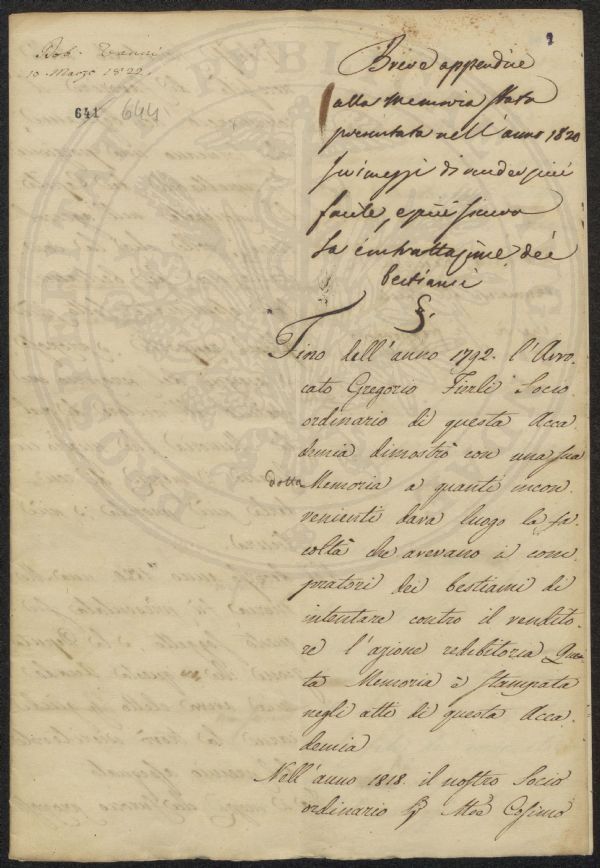 10 Marzo 1822.
641 644
Breve appendice
alla Memoria stata
presentata nell'anno 1820
su i mezzi di render più
facile, e più sicura
la contrattazione dei
bestiami
§.
Fino dell'anno 1792. l'Avvo.
cato Gregorio Fierli Socio
ordinario di questa Acca.
demia dimostrò con una sua
dotta Memoria a quanti incon.
venienti dava luogo la fa.
coltà che avevano i com.
pratori dei bestiami di
intentare contro il vendito.
re l'azione redibitoria Que.
ta Memoria è stampata
negli atti di questa Acca.
demia
Nell'anno 1818. il nostro Socio
ordinario Cosimo